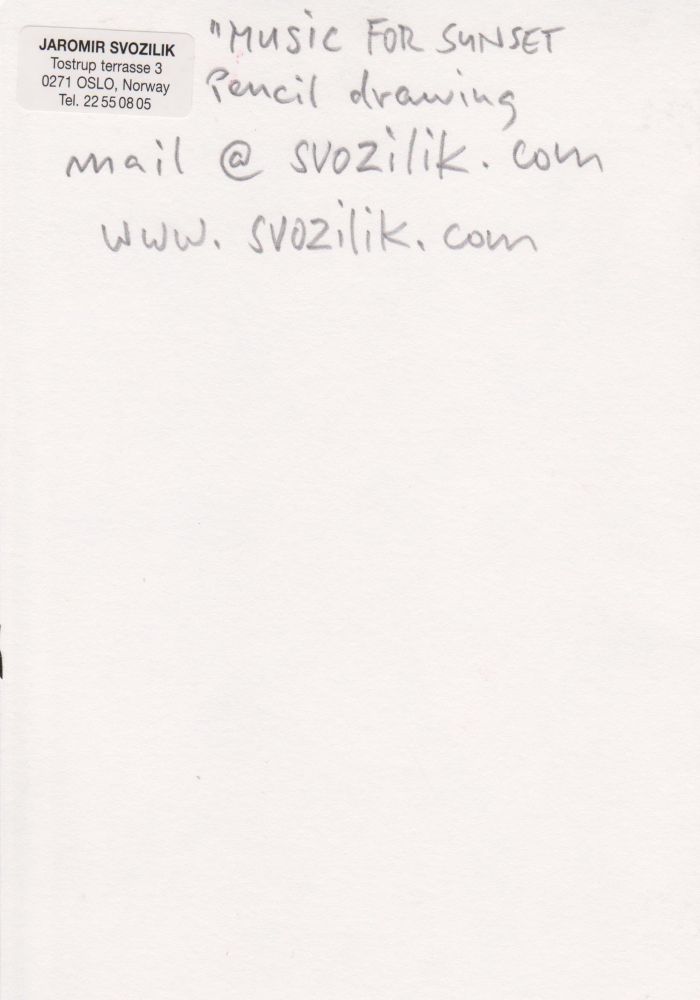 JAROMIR SVOZILIK
Tostrup terrasse 3
0271 OSLO, Norway
Tel. 22 55 08 05
"MUSIC FOR SUNSET
Pencil drawing
mail @ svozilik. com
www. svozilik. com